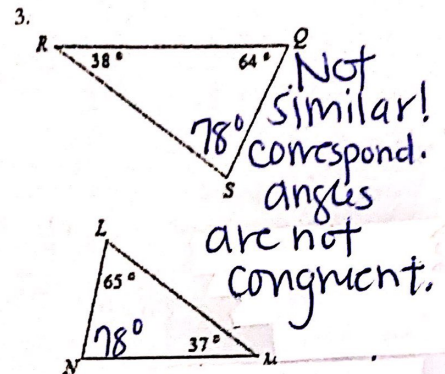 3.
R 38° 64° Q
Not
similar!
78° correspond.
S angles
L are not
65° congruent.
78° 37°
N M